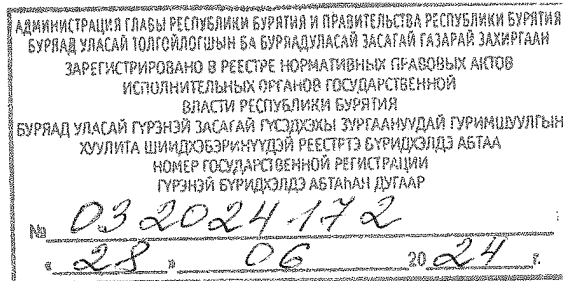 АДМИНИСТРАЦИЯ ГЛАВЫ РЕСПУБЛИКИ БУРЯТИЯ И ПРАВИТЕЛЬСТВА РЕСПУБЛИКИ БУРЯТИЯ
БУРЯАД УЛАСАЙ ТОЛГОЙЛОГШЫН БА БУРЯАДУЛАСАЙ ЗАСАГАЙ ГАЗАРАЙ ЗАХИРГААН
ЗАРЕГИСТРИРОВАНО В РЕЕСТРЕ НОРМАТИВНЫХ ПРАВОВЫХ АКТОВ
ИСПОЛНИТЕЛЬНЫХ ОРГАНОВ ГОСУДАРСТВЕННОЙ
ВЛАСТИ РЕСПУБЛИКИ БУРЯТИЯ
БУРЯАД УЛАСАЙ ГҮРЭНЭЙ ЗАСАГАЙ ГҮСЭДХЭХЫ ЗУРГААНУУДАЙ ГУРИМШУУЛГЫН
ХУУЛИТА ШИИДХЭБЭРИНҮҮДЭЙ РЕЕСТРТЭ БҮРИДХЭЛДЭ АБТАА
НОМЕР ГОСУДАРСТВЕННОЙ РЕГИСТРАЦИИ
ГҮРЭНЭЙ БҮРИДХЭЛДЭ АБТАҺАН ДУГААР
№ 032024172
« 28 » 06 2024 г.